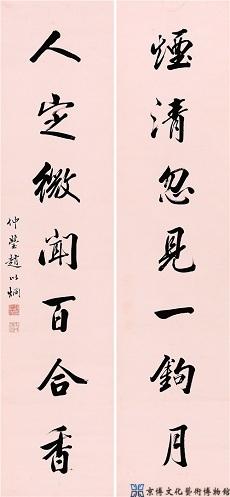 煙清忽見一鉤月
人定微聞百合香
仲瑩趙以炯
京博文化藝術博物館